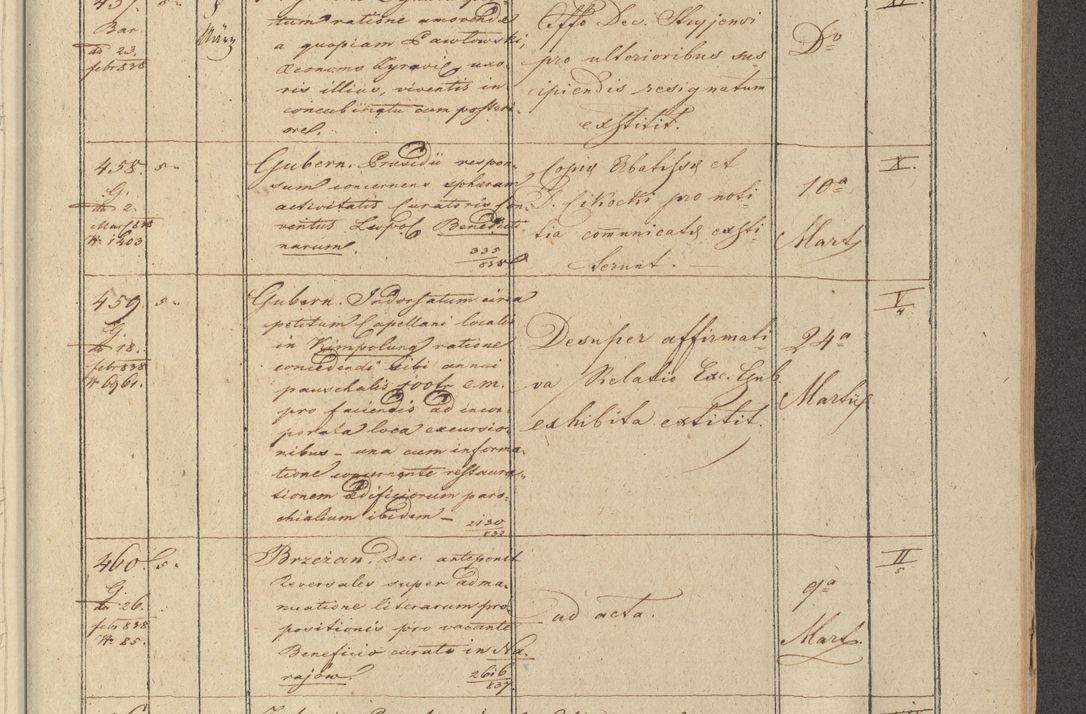 Bar
dd 23.
febr 838
März
tum ratione amovendæ
a quopiam Pawlowski,
Œconomo Kyravie, uxo-
ris illius, viventis in
concubinatu cum posteri
ore.
Offo Dec. Stryjensi
pro ulterioribus sus
cipiendis resignatum
exstitit.
Do
458. 5 "
G.
dd 2.
Mart 838
N. 1403
Gubern. Præsidii respon-
sum concernens sphæram
activitatis Curatoris Con-
ventus Leopol. Benedicti
narum.
335
838
Copia Abatissæ et
D. Cikocki pro noti-
tia comunicatæ exsti-
terunt. —
10a
Marty
X.
459. 5 "
G.
dd 18.
febr 838
N. 6961.
Gubern. Indorsatum circa
petitum Capellani localis
in Kimpolung ratione
concedendi sibi annui
pauschalis 100fr C.M.
pro faciendis ad incor-
porata loca excursio-
nibus – una cum informa-
tione concernente restaura-
tionem Ædificiorum paro-
chialium ibidem –
2130
832
Desuper affirmati
va Relatio Exc. Gub.
exhibita extitit.
24a
Martii
V
4
460. 5 "
G.
dd 26.
febr 838
N. 85.
Brzeżan. Dec. anteponit
Reversales super adma-
nuatione literarum pro-
positionis pro vacante
Beneficio curato in Na-
rajów.
2616
837
ad acta.
9a
Mart.
II
5